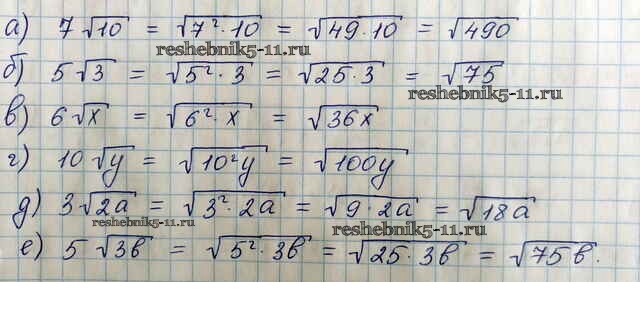 а) 7√10 = √7²·10 = √49·10 = √490
reshebnik5-11.ru
б) 5√3 = √5²·3 = √25·3 = √75
reshebnik5-11.ru
в) 6√x = √6²·x = √36x
г) 10√y = √10²y = √100y
д) 3√2a = √3²·2a = √9·2a = √18a
reshebnik5-11.ru
reshebnik5-11.ru
е) 5√3b = √5²·3b = √25·3b = √75b.